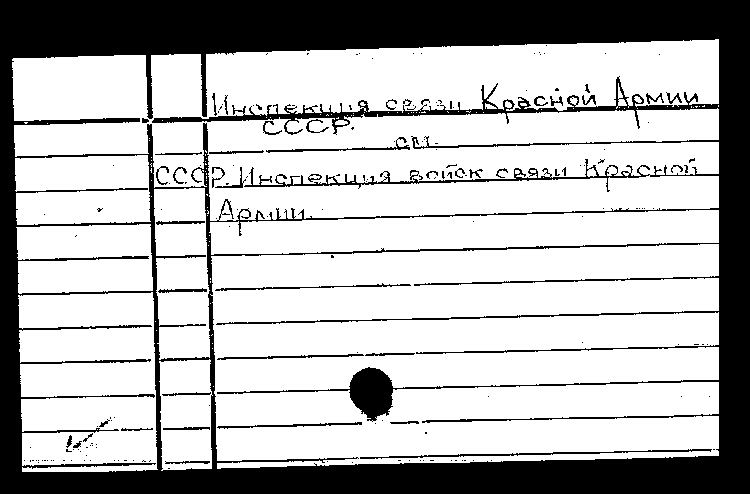 Инспекция связи Красной Армии
СССР.
см.
СССР. Инспекция войск связи Красной
Армии.